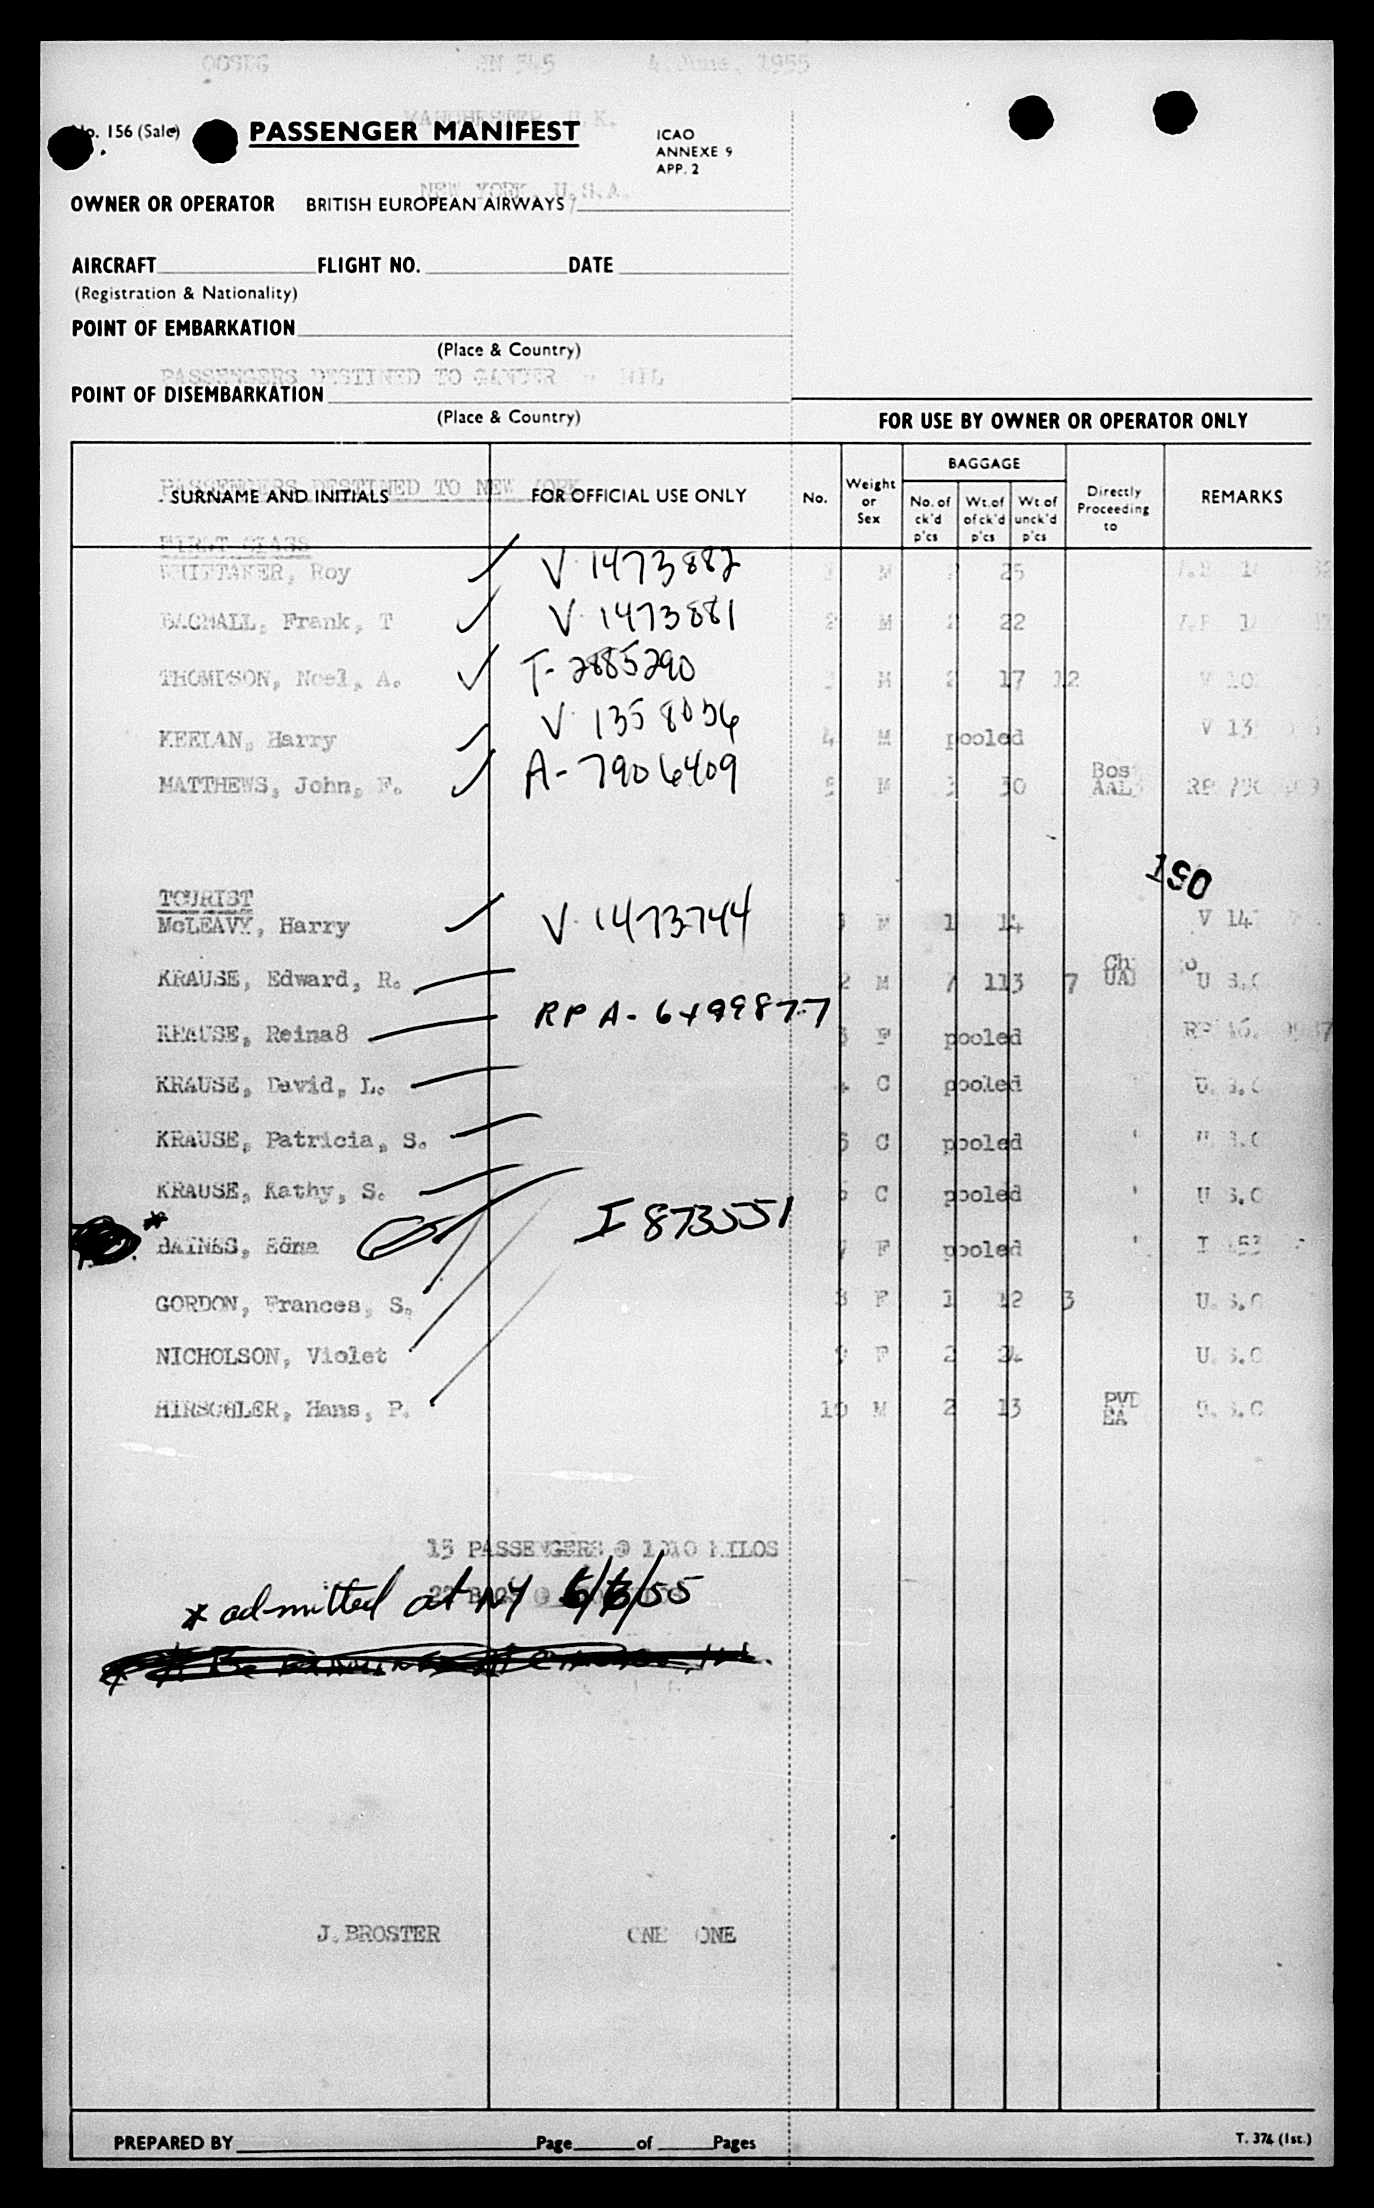 OOSDG SN 545 4 June, 1955
MANCHESTER, U.K.
No. 156 (Sale) PASSENGER MANIFEST ICAO
ANNEXE 9
APP. 2
NEW YORK, U.S.A.
OWNER OR OPERATOR BRITISH EUROPEAN AIRWAYS
AIRCRAFT FLIGHT NO. DATE
(Registration & Nationality)
POINT OF EMBARKATION
(Place & Country)
PASSENGERS DESTINED TO GANDER - NIL
POINT OF DISEMBARKATION
(Place & Country) FOR USE BY OWNER OR OPERATOR ONLY
PASSENGERS DESTINED TO NEW YORK
SURNAME AND INITIALS FOR OFFICIAL USE ONLY No. Weight or Sex BAGGAGE No. of ck'd p'cs Wt. of of ck'd p'cs Wt of unck'd p'cs Directly Proceeding to REMARKS
FIRST CLASS
WHITTAKER, Roy V. 1473882 M 2 25
BAGNALL, Frank, T V. 1473881 2 M 2 22
THOMPSON, Noel, A. T-2885290 M 2 17 12 V 10
KEELAN, Harry V. 1358036 4 M pooled V 13
MATTHEWS, John, F. A-7906409 5 M 3 30 Bos AAL RP 790 409
150
TOURIST
McLEAVY, Harry V. 1473744 M 1 14 V 14
KRAUSE, Edward, R. 2 M 7 113 7 Ch o UAL U S.C
KRAUSE, Reina8 RPA-6499877 3 F pooled RP A6
KRAUSE, David, L. 4 C pooled U.S.C
KRAUSE, Patricia, S. 5 C pooled " U.S.C
KRAUSE, Kathy, S. 6 C pooled " U S.C
* BAINES, Edna I 873551 7 F pooled " I
GORDON, Frances, S. 8 F 1 12 3 U.S.C
NICHOLSON, Violet 9 F 2 24 U.S.C
HIRSCHLER, Hans, P. 10 M 2 13 PVD EA U.S.C
15 PASSENGERS @ 1010 KILOS
22 BAGS @
* admitted at NY 6/6/55
J. BROSTER ONE ONE
PREPARED BY Page of Pages T. 374 (1st.)